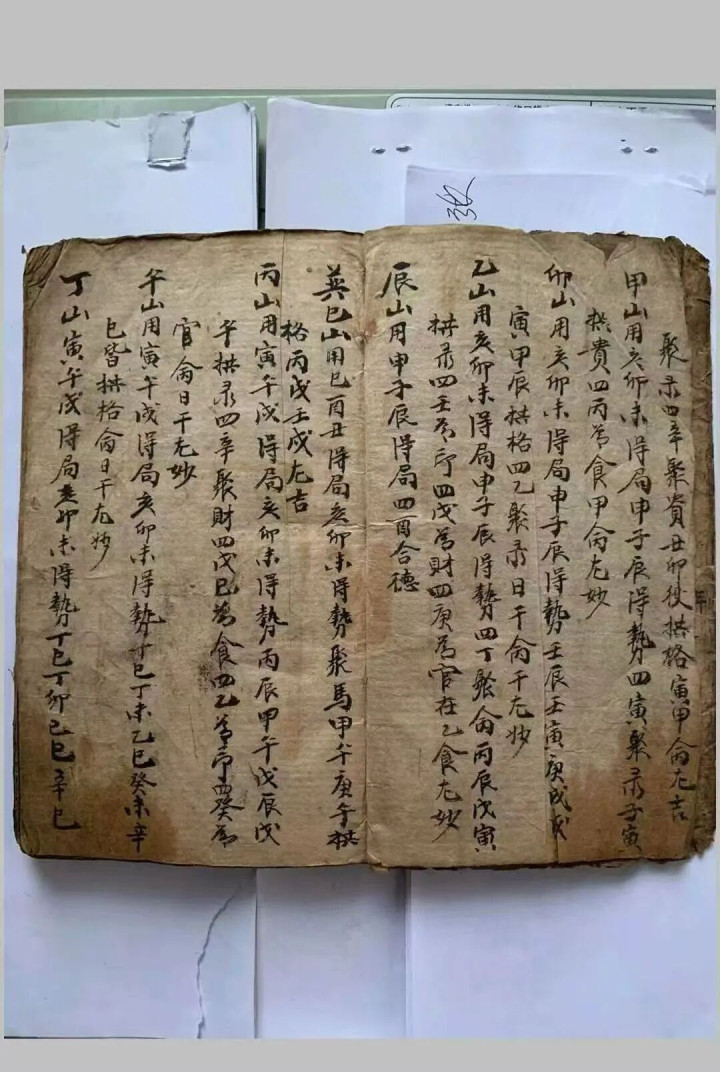 聚彔四辛聚貴丑卯後拱格寅甲侖尤吉
甲山用亥卯未得局申子辰得勢四寅聚彔子寅
拱貴四丙為食甲侖尤妙
卯山用亥卯未得局申子辰得勢壬辰壬寅庚戌戊
寅甲辰拱格四乙聚彔日干侖干尤妙
乙山用亥卯未得局申子辰得勢四丁聚侖丙辰戊寅
拱彔四壬為印四戊為財四庚為官在乙食尤妙
辰山用申子辰得局四酉合德
巳山用巳酉丑得局亥卯未得勢聚馬甲午庚午拱
格丙戌壬戌尤吉
丙山用寅午戌得局亥卯未得勢丙辰甲午戊辰戊
午拱彔四辛聚財四戊巳為食四乙為印四癸為
官侖日干尤妙
午山用寅午戌得局亥卯未得勢丁巳丁未乙巳癸未辛
巳皆拱格侖日干尤妙
丁山寅午戌得局亥卯未得勢丁巳丁卯己巳辛巳